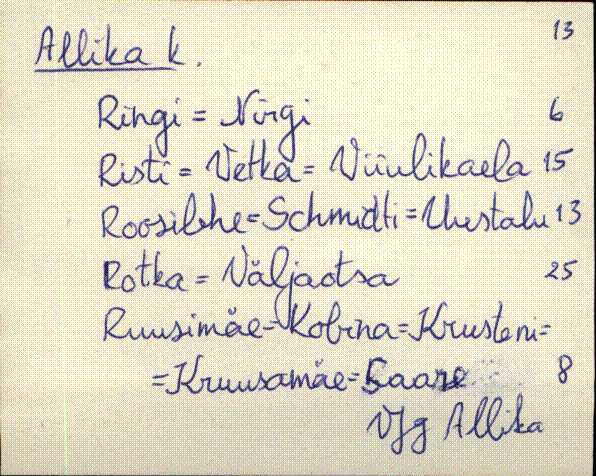 13
Allika k.
Ringi = Nirgi 6
Risti = Vetka = Viiulikaela 15
= Schmidti = Uuestalu 13
Rotka = Väljaotsa 25
Ruusimäe = Kobina = Krusteni =
= Kruusamäe = Saare 8
Vjg Allika